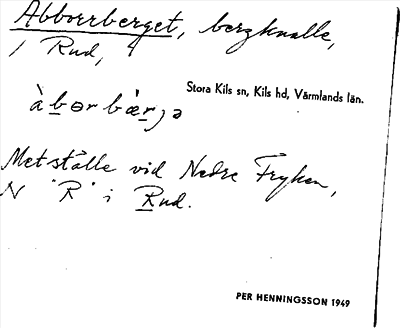 Abborrberget, bergknalle,
i Rud,
Stora Kils sn, Kils hd, Värmlands län.
àbɵrbæ̀rjə
Metställe vid Nedre Fryken,
N "R" i Rud.
PER HENNINGSSON 1949